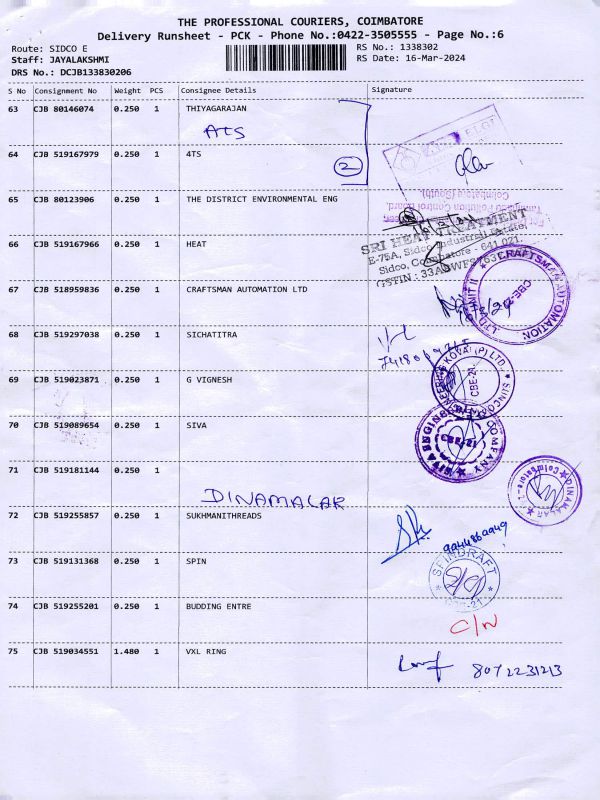 THE PROFESSIONAL COURIERS, COIMBATORE
Delivery Runsheet - PCK - Phone No.:0422-3505555 - Page No.:6
Route: SIDCO E
RS No.: 1338302
Staff: JAYALAKSHMI
RS Date: 16-Mar-2024
DRS No.: DCJB133830206
S No Consignment No Weight PCS Consignee Details Signature
63 CJB 80146074 0.250 1 THIYAGARAJAN
ATS
64 CJB 519167979 0.250 1 4TS
2
65 CJB 80123906 0.250 1 THE DISTRICT ENVIRONMENTAL ENG
Pollution Control Board,
Coimbatore (South)
66 CJB 519167966 0.250 1 HEAT
SRI HEAT TREATMENT
E-75A, Sidco Industrial Estate,
Sidco, Coimbatore - 641 021.
GSTIN : 33A
67 CJB 518959836 0.250 1 CRAFTSMAN AUTOMATION LTD
CRAFTSMAN AUTOMATION LTD UNIT II
CBE-21
68 CJB 519297038 0.250 1 SICHATITRA
69 CJB 519023871 0.250 1 G VIGNESH
KOVAI (P) LTD
CBE-21
70 CJB 519089654 0.250 1 SIVA
SIVA ENGINEERING COMPANY
71 CJB 519181144 0.250 1
DINAMALAR
DINAMALAR Coimbatore
72 CJB 519255857 0.250 1 SUKHMANITHREADS
9944860949
73 CJB 519131368 0.250 1 SPIN
SPINDRAFT
CBE-21
74 CJB 519255201 0.250 1 BUDDING ENTRE
C/N
75 CJB 519034551 1.480 1 VXL RING
8072231213